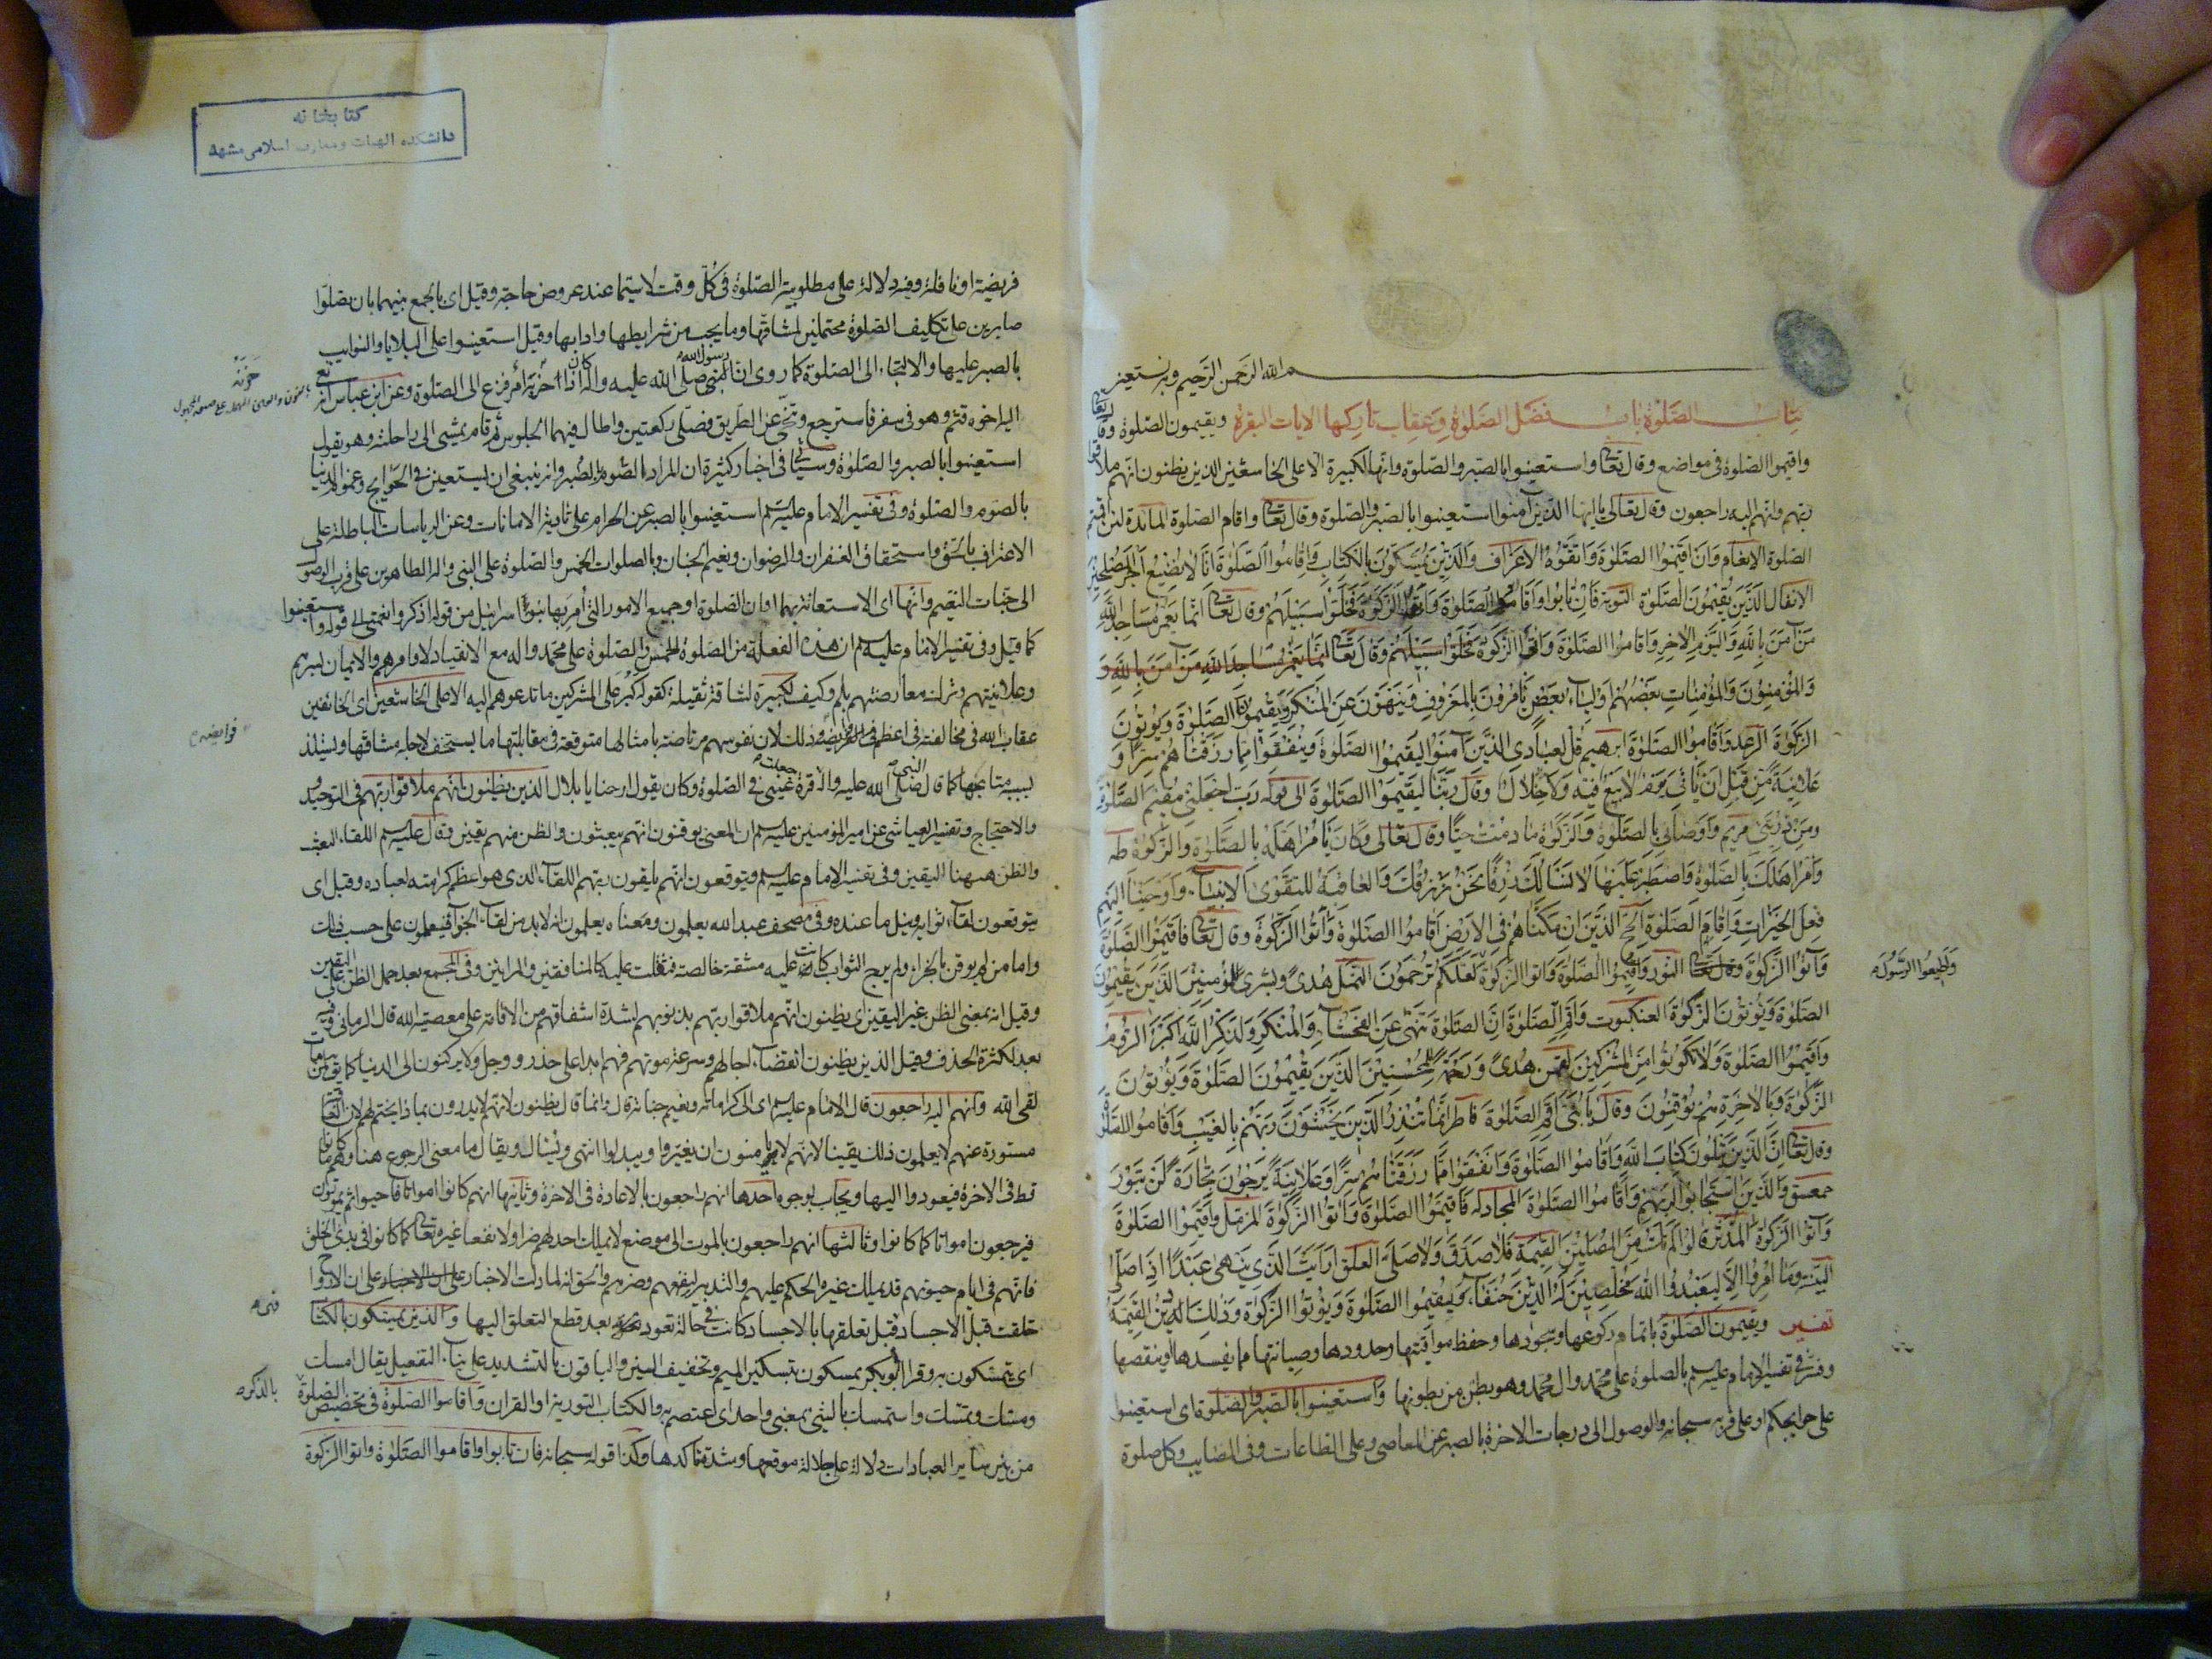 بسم الله الرحمن الرحيم وبه نستعين
كتاب الصلوة باب فضل الصلوة وعقاب تاركها الايات البقرة ويقيمون الصلوة وقال تعالى
واقيموا الصلوة فى مواضع وقال تعالى واستعينوا بالصبر والصلوة وانها لكبيرة الا على الخاشعين الذين يظنون انهم ملاقوا
ربهم وانهم اليه راجعون وقال تعالى يا ايها الذين آمنوا استعينوا بالصبر والصلوة وقال تعالى واقام الصلوة المائدة لئن اقمتم
الصلوة الانعام وَاَنْ اَقيمُوا الصَّلوةَ وَاتَّقُوهُ الاعراف وَالَّذينَ يُمَسِّكُونَ بِالكِتابِ وَاَقامُوا الصَّلوةَ اِنّا لا نُضيعُ اَجْرَ المُصْلِحينَ
الانفال الَّذينَ يُقيمُونَ الصَّلوةَ التوبة فَاِنْ تابُوا وَاَقامُوا الصَّلوةَ وَآتَوُا الزَّكوةَ فَخَلُّوا سَبيلَهُمْ وقال تعالى اِنَّما يَعْمُرُ مَساجِدَ اللهِ
مَنْ آمَنَ بِاللهِ وَاليَوْمِ الآخِرِ وَاَقامُوا الصَّلوةَ وَآتَوُا الزَّكوةَ فَخَلُّوا سَبيلَهُمْ وقال تعالى اِنَّما يَعْمُرُ مَساجِدَ اللهِ مَنْ آمَنَ بِاللهِ وَ
وَالمُؤْمِنُونَ وَالمُؤْمِناتُ بَعْضُهُمْ اَوْلِياءُ بَعْضٍ يَأمُرُونَ بِالمَعْرُوفِ وَيَنْهَوْنَ عَنِ المُنْكَرِ وَيُقيمُونَ الصَّلوةَ وَيُؤْتُونَ
الزَّكوةَ الرعد وَاَقامُوا الصَّلوةَ ابرهيم قُلْ لِعِبادِيَ الَّذينَ آمَنُوا يُقيمُوا الصَّلوةَ وَيُنْفِقُوا مِمّا رَزَقْناهُمْ سِرًّا وَ
عَلانِيَةً مِنْ قَبْلِ اَنْ يَأتِيَ يَوْمٌ لا بَيْعٌ فيهِ وَلا خِلالٌ وقال رَبَّنا لِيُقيمُوا الصَّلوةَ الى قوله رَبِّ اجْعَلْني مُقيمَ الصَّلوةِ
وَمِنْ ذُرِّيَّتي مريم وَاَوْصاني بِالصَّلوةِ وَالزَّكوةِ ما دُمْتُ حَيًّا وقال تعالى وَكانَ يَأمُرُ اَهْلَهُ بِالصَّلوةِ وَالزَّكوةِ طه
وَأمُرْ اَهْلَكَ بِالصَّلوةِ وَاصْطَبِرْ عَلَيْها لا نَسْأَلُكَ رِزْقًا نَحْنُ نَرْزُقُكَ وَالعاقِبَةُ لِلتَّقْوى الانبياء وَاَوْحَيْنا اِلَيْهِمْ
فِعْلَ الخَيْراتِ وَاِقامَ الصَّلوةِ الحج الَّذينَ اِنْ مَكَّنّاهُمْ فِي الاَرْضِ اَقامُوا الصَّلوةَ وَآتَوُا الزَّكوةَ وقال تعالى فَاَقيمُوا الصَّلوةَ
وَآتُوا الزَّكوةَ النور وَاَقيمُوا الصَّلوةَ وَآتُوا الزَّكوةَ لَعَلَّكُمْ تُرْحَمُونَ النمل هُدىً وَبُشْرى لِلمُؤْمِنينَ الَّذينَ يُقيمُونَ
وَاَطيعُوا الرَّسُولَ
الصَّلوةَ وَيُؤْتُونَ الزَّكوةَ العنكبوت وَاَقِمِ الصَّلوةَ اِنَّ الصَّلوةَ تَنْهى عَنِ الفَحْشاءِ وَالمُنْكَرِ وَلَذِكْرُ اللهِ اَكْبَرُ الروم
وَاَقيمُوا الصَّلوةَ وَلا تَكُونُوا مِنَ المُشْرِكينَ لقمن هُدىً وَرَحْمَةً لِلمُحْسِنينَ الَّذينَ يُقيمُونَ الصَّلوةَ وَيُؤْتُونَ
الزَّكوةَ وَبِالآخِرَةِ هُمْ يُوقِنُونَ وقال يا بُنَيَّ اَقِمِ الصَّلوةَ فاطر اِنَّما تُنْذِرُ الَّذينَ يَخْشَوْنَ رَبَّهُمْ بِالغَيْبِ وَاَقامُوا الصَّلوةَ
وقال تعالى اِنَّ الَّذينَ يَتْلُونَ كِتابَ اللهِ وَاَقامُوا الصَّلوةَ وَاَنْفَقُوا مِمّا رَزَقْناهُمْ سِرًّا وَعَلانِيَةً يَرْجُونَ تِجارَةً لَنْ تَبُورَ
حمعسق وَالَّذينَ اسْتَجابُوا لِرَبِّهِمْ وَاَقامُوا الصَّلوةَ المجادلة فَاَقيمُوا الصَّلوةَ وَآتُوا الزَّكوةَ المزمل وَاَقيمُوا الصَّلوةَ
وَآتُوا الزَّكوةَ المدثر قالُوا لَمْ نَكُ مِنَ المُصَلّينَ القيمة فَلا صَدَّقَ وَلا صَلّى العلق اَرَاَيْتَ الَّذي يَنْهى عَبْدًا اِذا صَلّى
البينة وَما اُمِرُوا اِلاّ لِيَعْبُدُوا اللهَ مُخْلِصينَ لَهُ الدّينَ حُنَفاءَ وَيُقيمُوا الصَّلوةَ وَيُؤْتُوا الزَّكوةَ وَذلِكَ دينُ القَيِّمَةِ
تفسير ويقيمون الصلوة باتمام ركوعها وسجودها وحفظ مواقيتها وحدودها وصيانتها مما يفسدها او ينقصها
وفسر فى تفسير الامام عليه السلم بالصلوة على محمد وال محمد وهو بطن من بطونها واستعينوا بالصبر والصلوة اى استعينوا
على حوايجكم او على قربه سبحانه والوصول الى درجات الاخرة بالصبر عن المعاصى وعلى الطاعات وفى المصايب وكل صلوة
كتابخانه
دانشكده الهيات ومعارف اسلامى مشهد
فريضة او نافلة وفيه دلالة على مطلوبية الصلوة فى كل وقت لا سيما عند عروض حاجة وقيل اى بالجمع بينهما بان يصلوا
صابرين على تكليف الصلوة محتملين لمشاقها وما يجب من شرايطها وادابها وقيل استعينوا على البلايا والنوايب
بالصبر عليها والالتجاء الى الصلوة كما روى ان رسول الله صلى الله عليه واله كان اذا احزنه امر فزع الى الصلوة وعن ابن عباس انه نعى
اليه اخوه قثم وهو فى سفر فاسترجع وتنحى عن الطريق فصلى ركعتين واطال فيهما الجلوس ثم قام يمشى الى راحلته وهو يقول
استعينوا بالصبر والصلوة وسيأتى فى اخبار كثيرة ان المراد بالصبر الصوم وانه ينبغى ان يستعين فى الحوايج وغموم الدنيا
بالصوم والصلوة وفى تفسير الامام عليه السلم استعينوا بالصبر عن الحرام على تادية الامانات وعن الرياسات الباطلة على
الاعتراف بالحق واستحقاق الغفران والرضوان ونعيم الجنان وبالصلوات الخمس والصلوة على النبى واله الطاهرين على قرب الوصول
الى جنات النعيم وانها اى الاستعانة بهما او ان الصلوة او جميع الامور التى امر بها بنو اسرائيل من قوله اذكروا نعمتى الى قوله واستعينوا
كما قيل وفى تفسير الامام عليه السلم ان هذه الفعلة من الصلوة الخمس والصلوة على محمد واله مع الانقياد لاوامرهم والايمان بسرهم
وعلانيتهم وترك معارضتهم بلم وكيف لكبيرة لشاقة ثقيلة كقوله كبر على المشركين ما تدعوهم اليه الا على الخاشعين اى الخائفين
عقاب الله فى مخالفته فى اعظم فرايضه وذلك لان نفوسهم مرتاضة بامثالها متوقعة فى مقابلتها ما يستخف لاجله مشاقها ويستلذ
فرايضه
بسببه متاعبها كما قال النبى صلى الله عليه واله جعلت قرة عينى فى الصلوة وكان يقول ارحنا يا بلال الذين يظنون انهم ملاقوا ربهم فى التوحيد
والاحتجاج وتفسير العياشى عن امير المؤمنين عليه السلم ان المعنى يوقنون انهم يبعثون والظن منهم يقين وقال عليه السلم اللقاء البعث
والظن ههنا اليقين وفى تفسير الامام عليه السلم ويتوقعون انهم يلقون ربهم اللقاء الذى هو اعظم كرامته لعباده وقيل اى
يتوقعون لقاء ثوابه ونيل ما عنده وفى مصحف عبد الله يعلمون ومعناه يعلمون انه لا بد من لقاء الجزاء فيعملون على حسب ذلك
واما من لم يوقن بالجزاء ولم يرج الثواب كانت عليه مشقة خالصة فثقلت عليه كالمنافقين والمرائين وفى المجمع بعد حمل الظن على اليقين
وقيل انه بمعنى الظن غير اليقين اى يظنون انهم ملاقوا ربهم بذنوبهم لشدة اشفاقهم من الاقامة على معصية الله قال الرمانى وفيه
بعد لكثرة الحذف وقيل الذين يظنون انقضاء اجالهم وسرعة موتهم فهم ابدا على حذر ووجل ولا يركنون الى الدنيا كما يقال لمن مات
لقى الله وانهم اليه راجعون قال الامام عليه السلم اى الى كراماته ونعيم جناته قال وانما قال يظنون لانهم لا يدرون بما ذا يختم لهم لان العاقبة
مستورة عنهم لا يعلمون ذلك يقينا لانهم لا يامنون ان يغيروا ويبدلوا انتهى ويسأل ويقال ما معنى الرجوع هنا وهم ما كانوا
قط فى الاخرة فيعودوا اليها ويجاب بوجوه احدها انهم راجعون بالاعادة فى الاخرة وثانيها انهم كانوا امواتا فاحيوا ثم يموتون
فيرجعون امواتا كما كانوا وثالثها انهم راجعون بالموت الى موضع لا يملك احد لهم ضرا ولا نفعا غيره تعالى كما كانوا فى بدئ الخلق
فانهم فى ايام حيوتهم قد يملك غيره الحكم عليهم والتدبير لنفعهم وضرهم والحق انه لما دلت الاخبار على ان الارواح
خلقت قبل الاجساد قبل تعلقها بالاجساد كانت فى حالة تعود بعد قطع التعلق اليها والذين يمسكون بالكتاب
اى يتمسكون به وقرا ابو بكر يمسكون بتسكين الميم وتخفيف السين والباقون بالتشديد على بناء التفعيل يقال امسك
ومسك وتمسك واستمسك بالشئ بمعنى واحد اى اعتصم به والكتاب التورية او القران واقاموا الصلوة فى تخصيص الصلوة
بالذكر
من بين ساير العبادات دلالة على جلالة موقعها وشدة تاكدها وكذا قوله سبحانه فان تابوا واقاموا الصلوة واتوا الزكوة